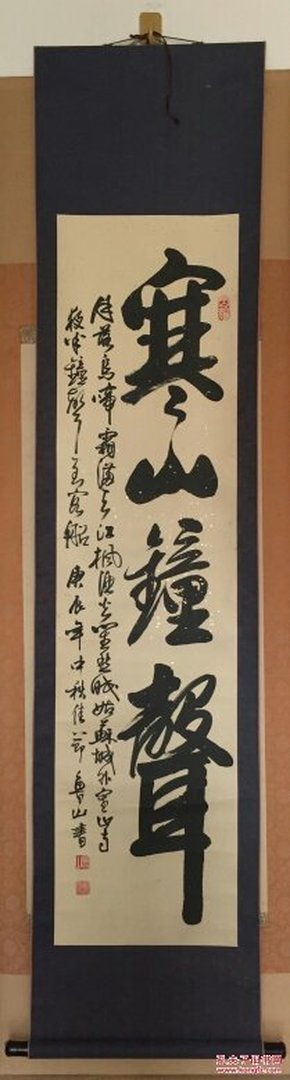 寒山鐘聲
月落烏啼霜滿天江楓漁火對愁眠姑蘇城外寒山寺
夜半鐘聲到客船 庚辰年中秋佳節 魯山書